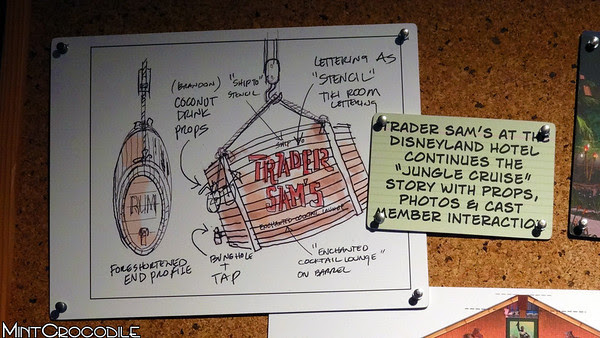 (BRANDON)
COCONUT
DRINK
PROPS
"SHIP TO"
STENCIL
LETTERING AS
"STENCIL"
TIKI ROOM
LETTERING
SHIP TO
TRADER
SAM'S
ENCHANTED COCKTAIL LOUNGE
RUM
FORESHORTENED
END PROFILE
BUNGHOLE
+
TAP
"ENCHANTED
COCKTAIL LOUNGE"
ON BARREL
TRADER SAM'S AT THE
DISNEYLAND HOTEL
CONTINUES THE
"JUNGLE CRUISE"
STORY WITH PROPS,
PHOTOS & CAST
MEMBER INTERACTION
MINTCROCODILE